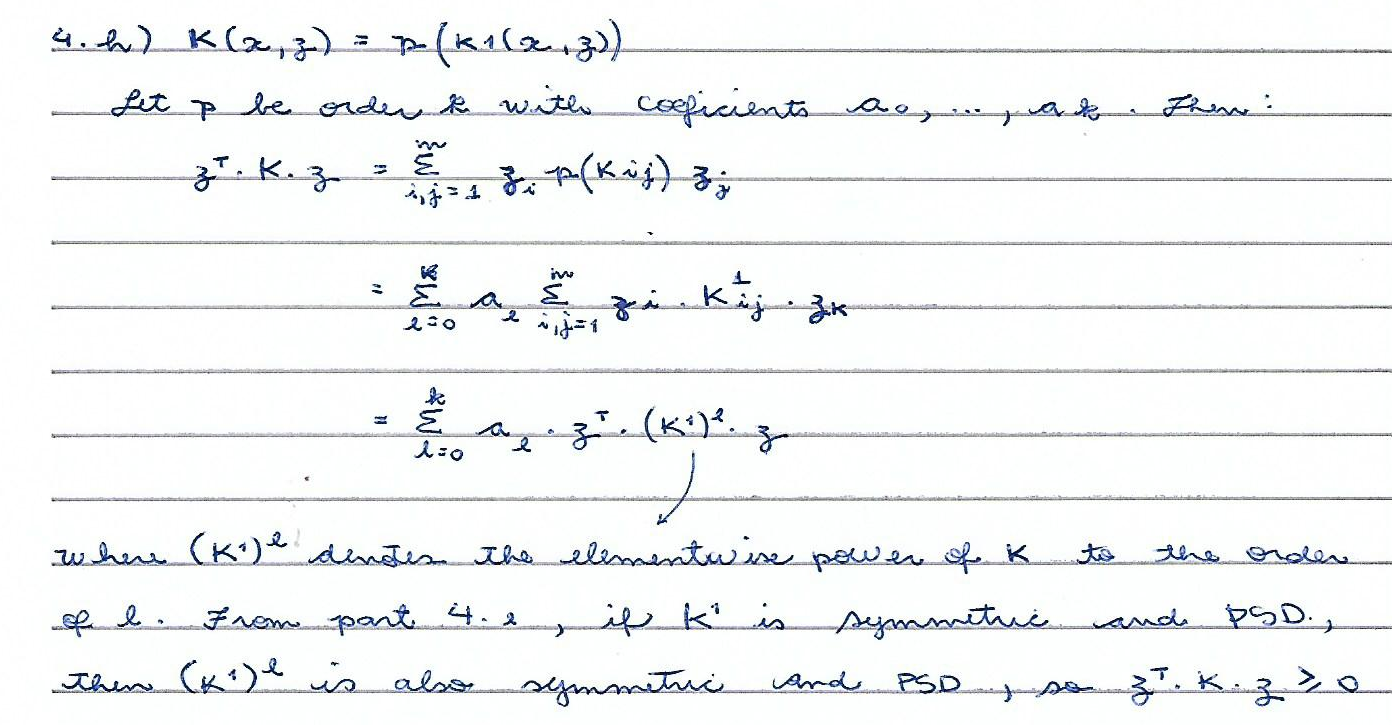 4. h) K(x, z) = p(K1(x, z))
Let p be order k with coeficients a0, ..., ak. Then:
z^T · K · z = Σ_{i,j=1}^{m} z_i p(K_ij) z_j
= Σ_{l=0}^{k} a_l Σ_{i,j=1}^{m} z_i · K^1_ij · z_k
= Σ_{l=0}^{k} a_l · z^T · (K^1)^l · z
where (K^1)^l denotes the elementwise power of K to the order
of l. From part 4. e, if K^1 is symmetric and PSD.,
then (K^1)^l is also symmetric and PSD, so z^T · K · z ≥ 0